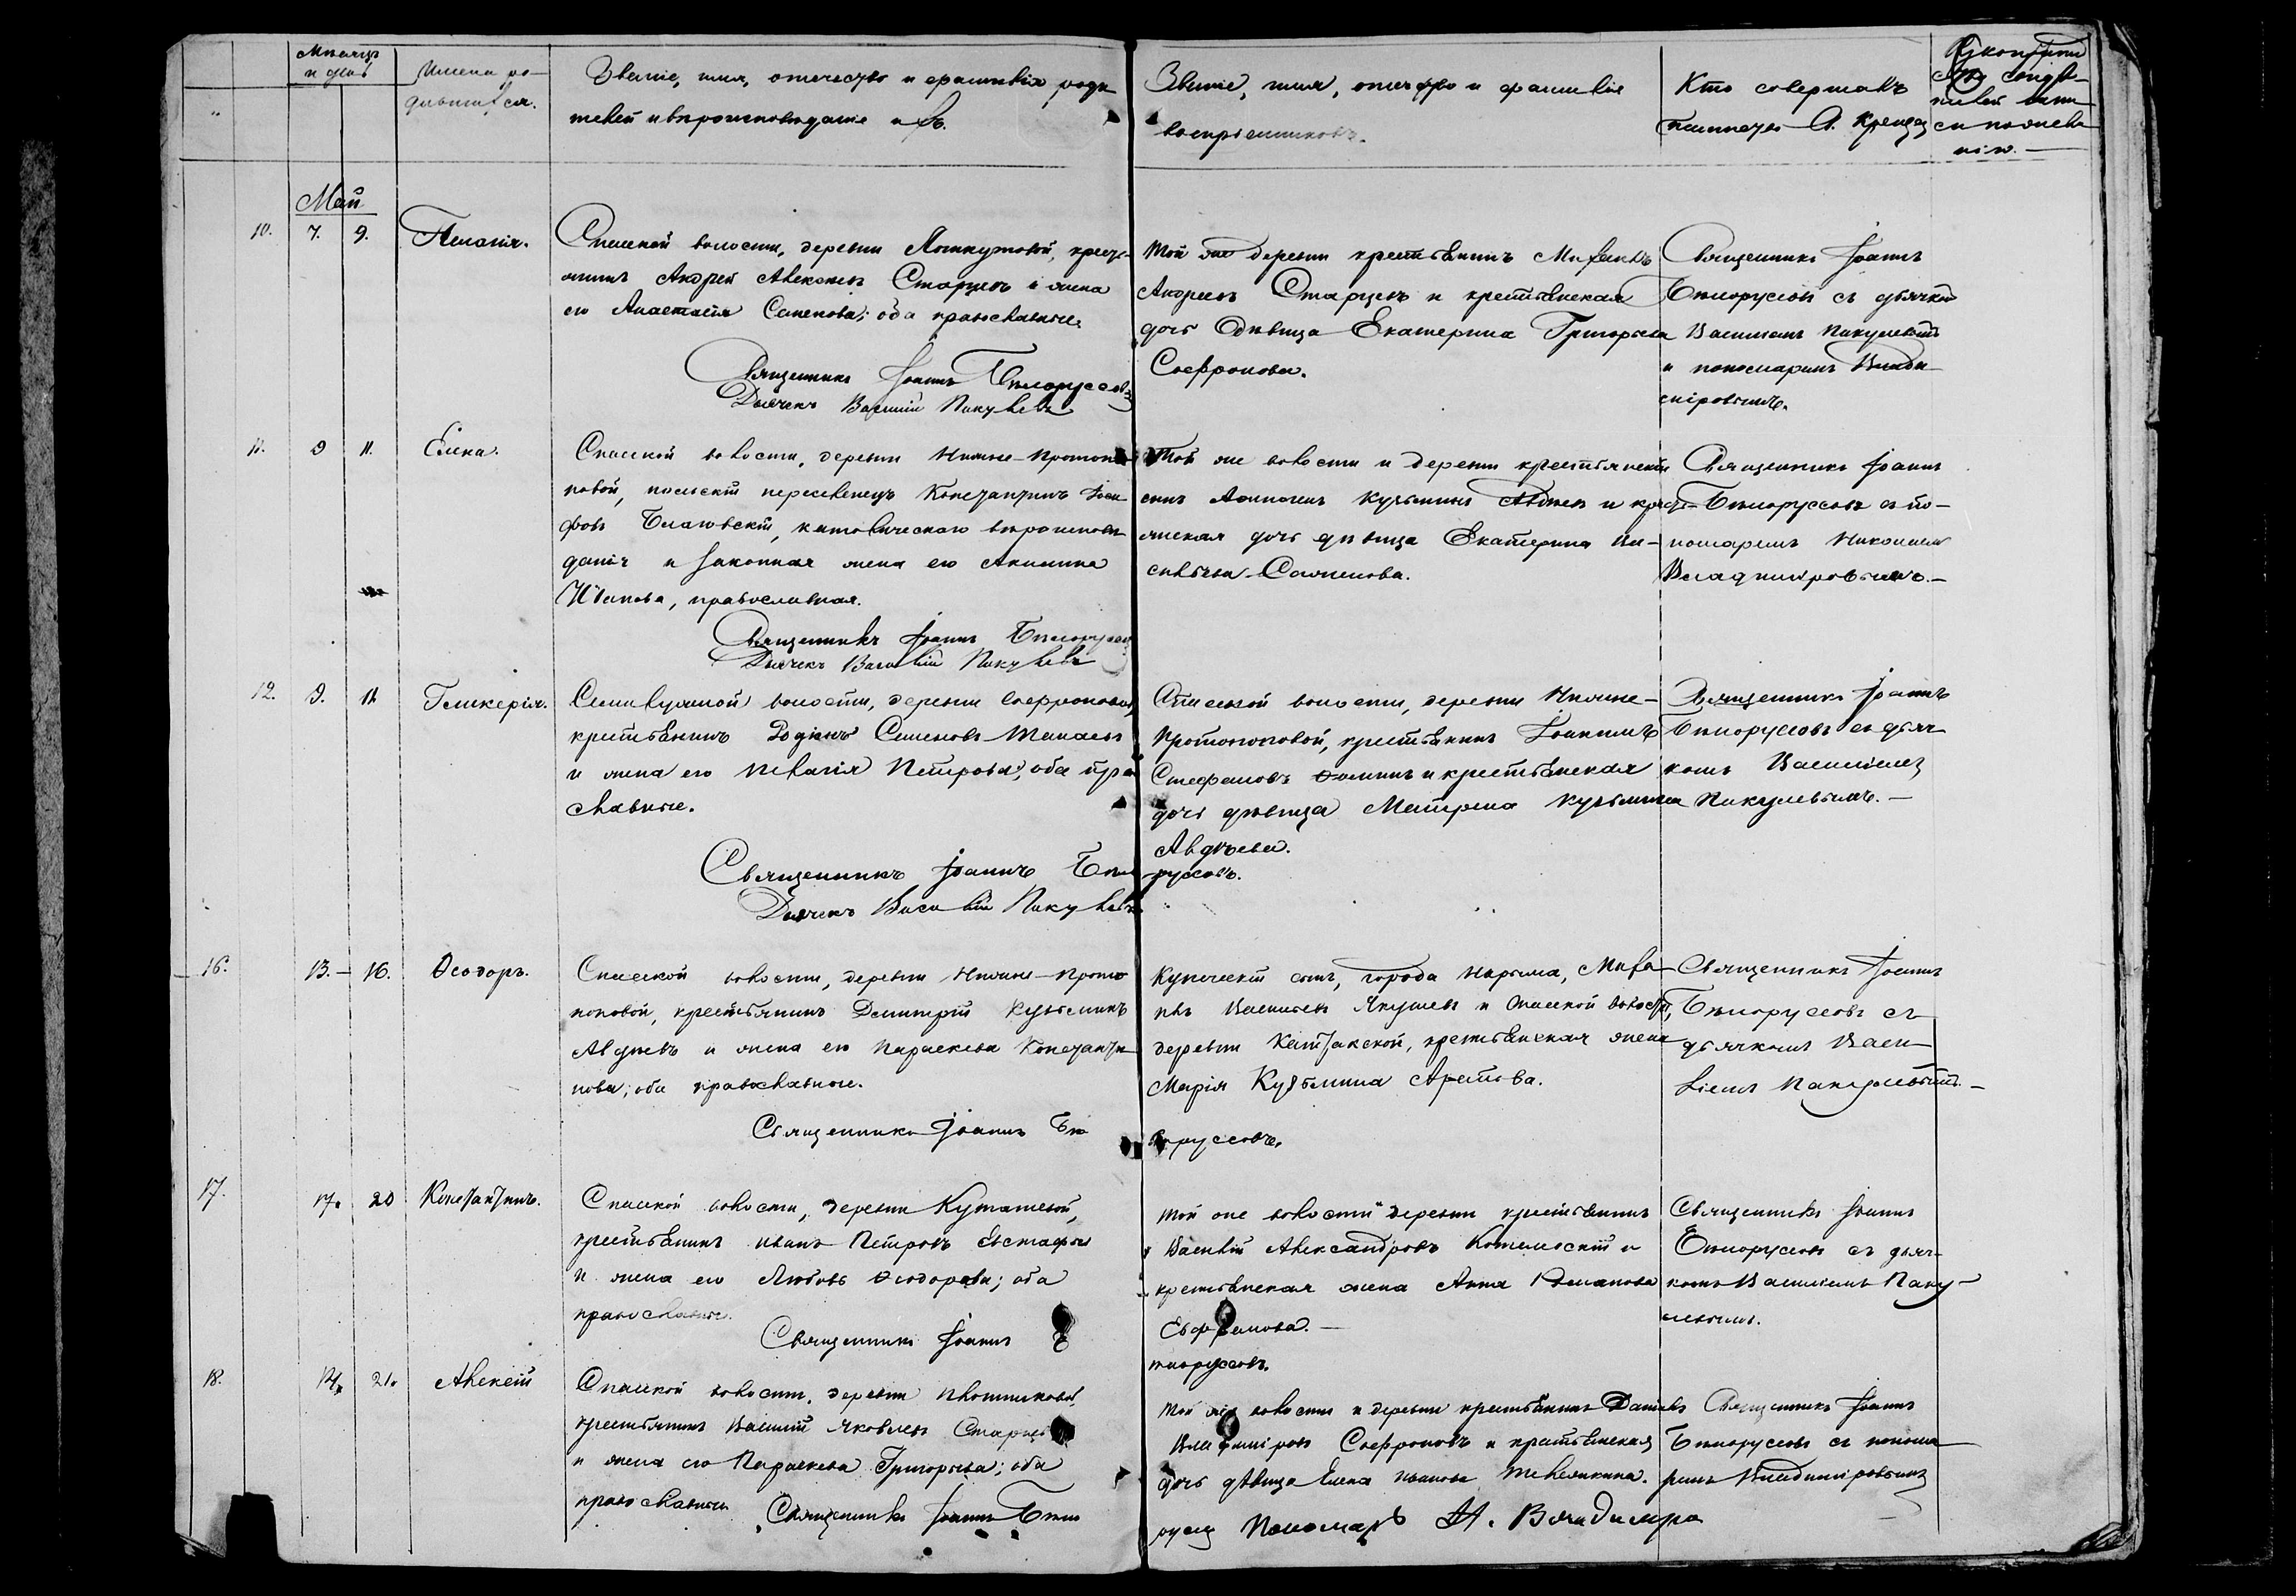 Мѣсяцъ
и день
Имена ро-
дившихся.
Званіе, имя, отчество и фамилія роди
телей и вѣроисповѣданіе ихъ.
Званіе, имя, отчество и фамилія
воспріемниковъ.
Кто совершалъ
таинство С. Крещен
Рукоприкл
свидѣ-
Май
10. 7. 9. Пелагія.
Спасской волости, деревни кресть-
янинъ Андрей Алексѣевъ Старцевъ и жена
его Анастасія Семенова; оба православные.
Священникъ Іоаннъ Бѣлоруссовъ
Дьячекъ Василій Пикулевъ
Той же деревни крестьянинъ Михаилъ
Андреевъ Старцевъ и крестьянская
дочь дѣвица Екатерина Григорьева
Софронова.
Священникъ Іоаннъ
Бѣлоруссовъ съ дьячком
Василіемъ Пикулевымъ
и пономаремъ Влади-
міровымъ.
11. 9 11. Елена.
Спасской волости, деревни Нижне-Протопо
повой, польскій переселенецъ Константинъ Іоси
фовъ католическаго вѣроисповѣ
данія и законная жена его Акилина
Иванова, православная.
Священникъ Іоаннъ Бѣлоруссов
Дьячекъ Василій Пикулевъ
Той же волости и деревни крестьянскій
сынъ Кузьминъ Авдѣевъ и кресть-
янская дочь дѣвица Екатерина Ва-
сильева
Священникъ Іоаннъ
Бѣлоруссовъ съ по-
номаремъ Николаемъ
Владиміровымъ.-
12. 9. 11 Гликерія.
волости, деревни Софроновой,
крестьянинъ Родіонъ Семеновъ
и жена его Пелагія Петрова; оба пра
славные.
Священникъ Іоаннъ Бѣло
Дьячекъ Василій Пикулевъ
Спасской волости, деревни Нижне-
Протопоповой, крестьянинъ Іоакимъ
Стефановъ Фоминъ и крестьянская
дочь дѣвица Матрена Кузьмина
Авдѣева.
руссовъ.
Священникъ Іоаннъ
Бѣлоруссовъ съ дьяч
комъ Василіемъ
Пикулевымъ.-
16. 13.- 16. Ѳеодоръ.
Спасской волости, деревни Нижне-Прото
поповой, крестьянинъ Димитрій Кузьминъ
Авдѣевъ и жена его Параскева Константи
нова; оба православные.
Священникъ Іоаннъ Бѣ
Купеческій сынъ, города Нарыма, Миха
илъ Васильевъ Якушевъ и Спасской волости,
деревни Казакской, крестьянская жена
Марія Кузьмина Аретова.
лоруссовъ.
Священникъ Іоаннъ
Бѣлоруссовъ съ
дьячкомъ Васи-
ліемъ Пикулевымъ.-
17. 17. 20 Константинъ.
Спасской волости, деревни
крестьянинъ Иванъ Петровъ Евстафьев
и жена его Любовь Ѳеодорова; оба
православные.
Священникъ Іоаннъ Б
Той же волости деревни крестьянинъ
Василій Александровъ и
крестьянская жена Анна Романова
лоруссовъ.
Священникъ Іоаннъ
Бѣлоруссовъ съ дьяч-
комъ Василіемъ Пику-
левымъ.
18. 21. Алексѣй
Спасской волости, деревни Плотниковой,
крестьянинъ Василій Яковлевъ Старцев
и жена его Параскева Григорьева; оба
православные Священникъ Іоаннъ Бѣло
Той же волости и деревни крестьянинъ Даніилъ
Владиміровъ Софроновъ и крестьянская
дочь дѣвица Елена Иванова
русс Пономарь Н. Владимиро
Священникъ Іоаннъ
Бѣлоруссовъ съ понома
ремъ Владиміровымъ